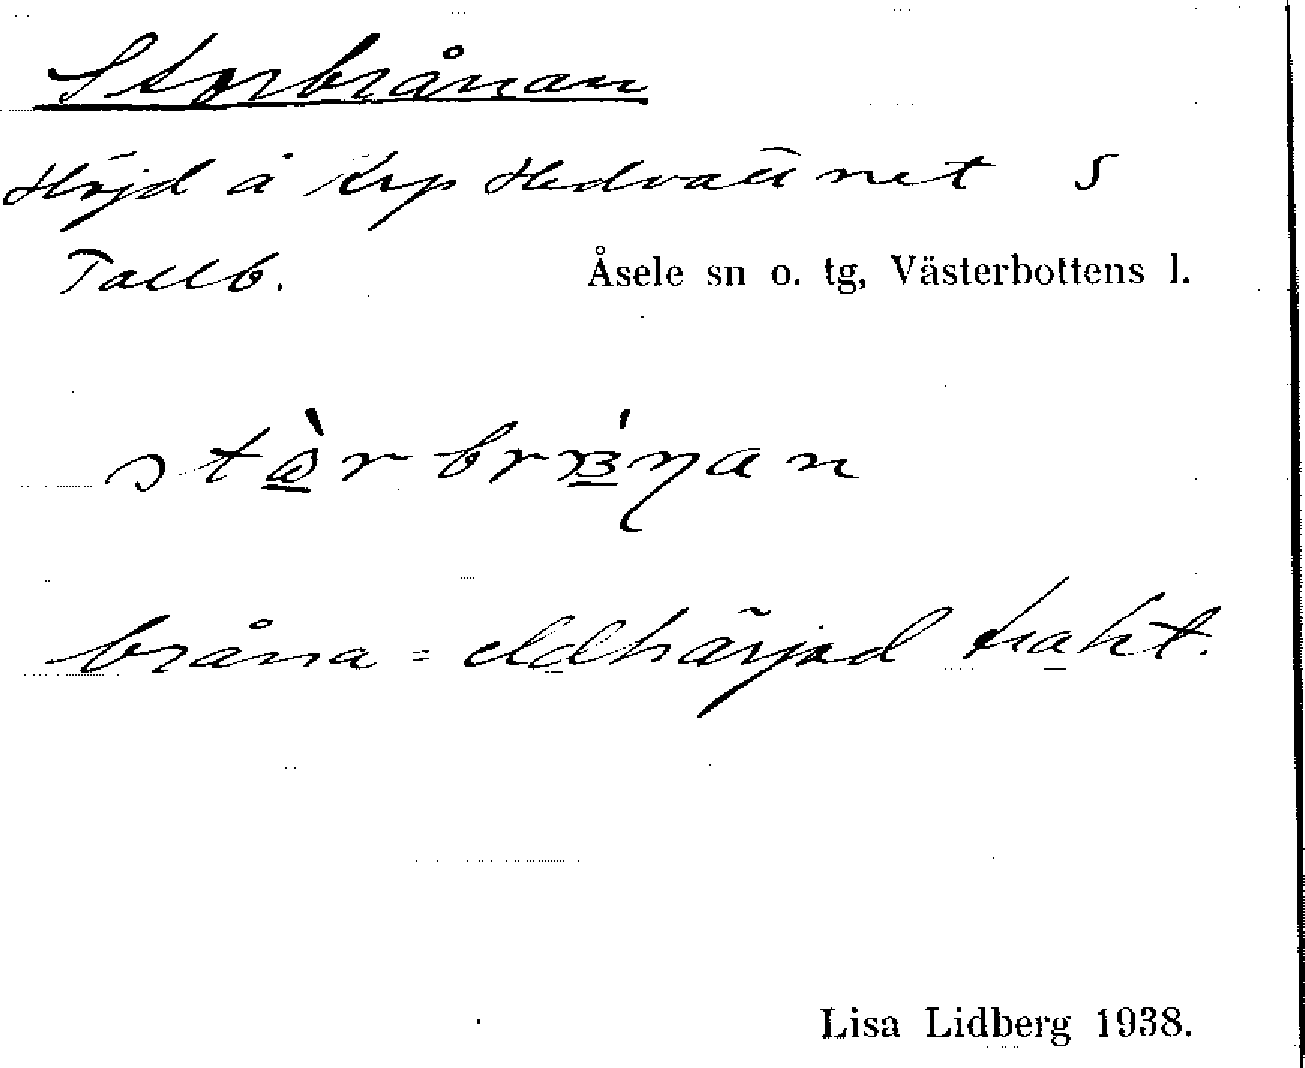 Storbrånan
Höjd å krp Hedvattnet S
Tallb. Åsele sn o. tg, Västerbottens l.
bråna = eldhärjad trakt.
Lisa Lidberg 1938.